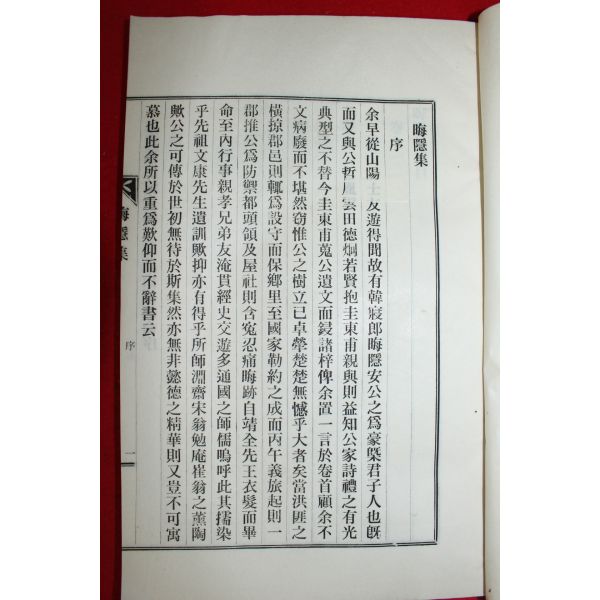 晦隱集
序
余早從山陽士友遊得聞故有韓寢郎晦隱安公之爲豪槩君子人也旣
而又與公哲胤雲田德炯若賢抱圭東甫親與則益知公家詩禮之有光
典型之不替今圭東甫蒐公遺文而鋟諸梓俾余置一言於卷首顧余不
文病廢而不堪然窃惟公之樹立已卓犖楚楚無憾乎大者矣當洪匪之
橫掠郡邑則輒爲設守而保鄉里至國家勒約之成而丙午義旅起則一
郡推公爲防禦都頭領及屋社則含寃忍痛晦跡自靖全先王衣髮而畢
命至內行事親孝兄弟友淹貫經史交遊多通國之師儒嗚呼此其擩染
乎先祖文康先生遺訓歟抑亦有得乎所師淵齋宋翁勉庵崔翁之薰陶
歟公之可傳於世初無待於斯集然亦無非懿德之精華則又豈不可寓
慕也此余所以重爲歎仰而不辭書云
晦隱集
序
一